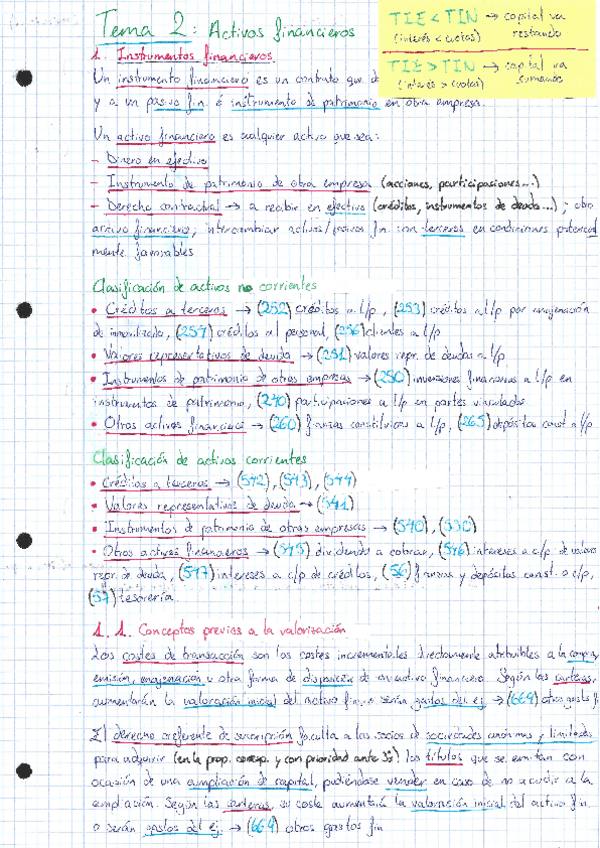 Tema 2: Activos financieros
TIE < TIN → capital va
(interés < cuotas) restando
TIE > TIN → capital va
(interés > cuotas) sumando
1. Instrumentos financieros
Un instrumento financiero es un contrato que d
y a un pasivo fin. o instrumento de patrimonio en otra empresa.
Un activo financiero es cualquier activo que sea:
- Dinero en efectivo
- Instrumento de patrimonio de otra empresa (acciones, participasiones...)
- Derecho contractual → a recibir en efectivo (créditos, instrumentos de deuda...); otro
activo financiero; intercambiar activos/pasivos fin. con terceros en condiciones potencial
mente favorables
Clasificación de activos no corrientes
• Créditos a terceros → (252) créditos a l/p, (253) créditos a l/p por enajenación
de inmovilizado, (254) créditos al personal, (256) clientes a l/p
• Valores representativos de deuda → (251) valores repr. de deudas a l/p
• Instrumentos de patrimonio de otras empresas → (250) inversiones financieras a l/p en
instrumentos de patrimonio, (240) participaciones a l/p en partes vinculadas
• Otros activos financieros → (260) fianzas constituidas a l/p, (265) depósitos const. a l/p.
Clasificación de activos corrientes
• Créditos a terceros → (542), (543), (544)
• Valores representativos de deuda → (541)
• Instrumentos de patrimonio de otras empresas → (540), (530)
• Otros activos financieros → (545) dividendo a cobrar, (546) intereses a c/p de valores
repr. de deuda, (547) intereses a c/p de créditos, (56) fianzas y depósitos const. a c/p,
(57) tesorería
1.1. Conceptos previos a la valorización
Los costes de transacción son los costes incrementales directamente atribuibles a la compra,
emisión, enajenación u otra forma de disposición de un activo financiero. Según las carteras,
aumentarán la valoración inicial del activo fin. o serán gastos del ej. → (669) otros gastos f.
El derecho preferente de suscripción faculta a los socios de sociedades anónimas y limitadas
para adquirir (en la prop. corresp. y con prioridad ante 3º) los títulos que se emitan con
ocasión de una ampliación de capital, pudiéndose vender en caso de no acudir a la
ampliación. Según las carteras, su coste aumentará la valoración inicial del activo fin.
o serán gastos del ej. → (669) otros gastos fin.